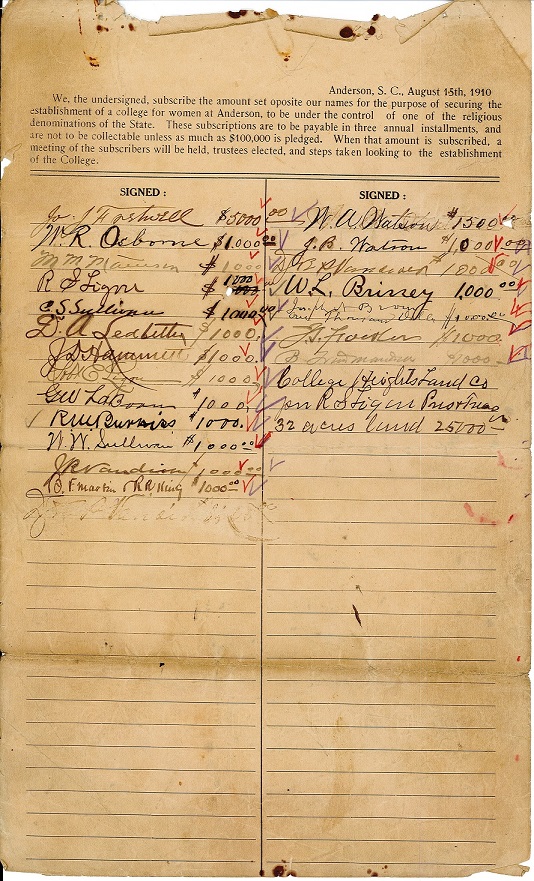 Anderson, S. C., August 15th, 1910
We, the undersigned, subscribe the amount set oposite our names for the purpose of securing the
establishment of a college for women at Anderson, to be under the control of one of the religious
denominations of the State. These subscriptions are to be payable in three annual installments, and
are not to be collectable unless as much as $100,000 is pledged. When that amount is subscribed, a
meeting of the subscribers will be held, trustees elected, and steps taken looking to the establishment
of the College.
SIGNED :
Jos. J Fretwell $5000.00
W. R. Osborne $1.000.00
M M Mattison $1000
R S Ligon $1000
C. S. Sullivan $1000.00
D. A. Ledbetter $1000.
J D Hammett $1000.
Ligon $1000
Geo W $1000.
R W Burriss $1000.
W. W. Sullivan $1000.00
J R Vandiver 1000.00
B. F. Martin & R. R. King $1000.00
SIGNED :
W. A. Watson $1500.00
J. B. Watson $1000.00
Vandiver 1000
W. L. Brissey 1,000.00
Joseph J Brown
One Thousand $1000.00
J. S. Fowler $1000
B 1000
College Heights Land Co
per R S Ligon Pres & Treas
32 acres land 25000